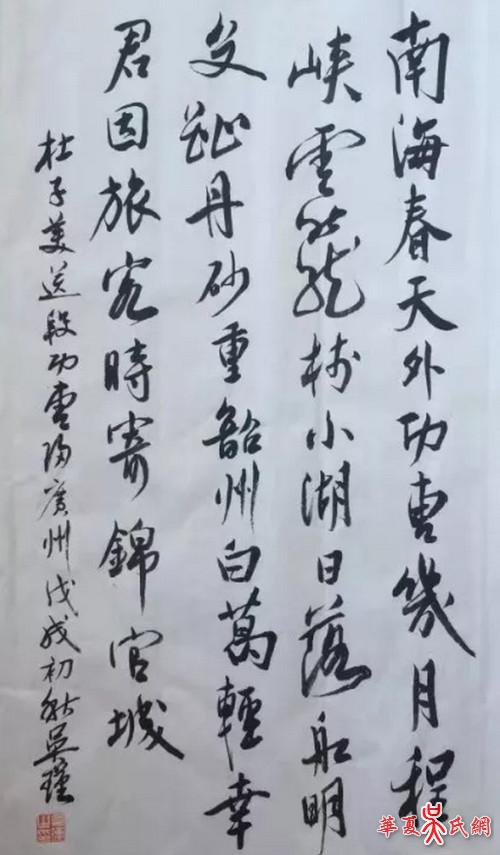 南海春天外功曹幾月程
峽雲籠樹小湖日落船明
交趾丹砂重韶州白萬輕幸
君因旅客時寄錦官城
杜子美送段功曹歸廣州戊戌初秋吳瑾
華夏吳氏網